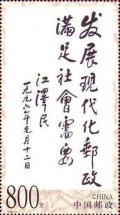 发展现代化邮政
满足社会需要
江泽民
一九九六年元月十二日
800分
CHINA
中国邮政